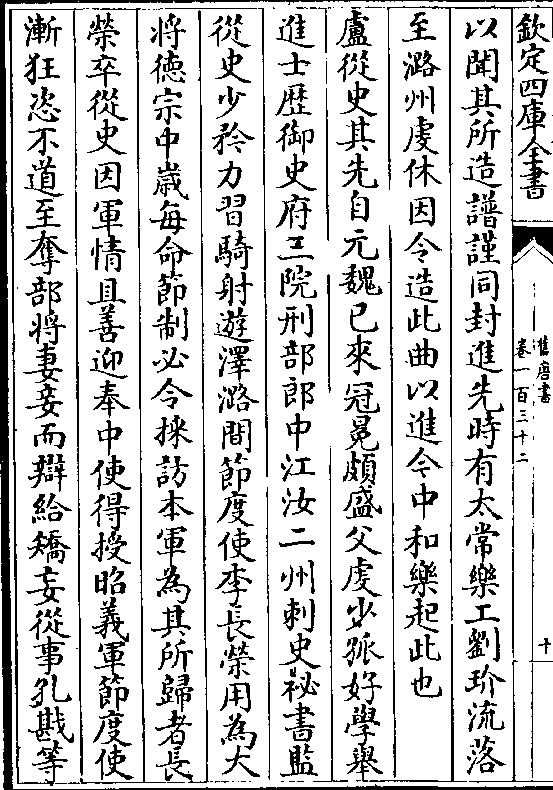 欽定四庫全書
舊唐書
卷一百三十二
十
以聞其所造譜謹同封進先時有太常樂工劉玠流落
至潞州虔休因令造此曲以進今中和樂起此也
盧從史其先自元魏已來冠冕頗盛父虔少孤好學舉
進士歷御史府三院刑部郎中江汝二州刺史祕書監
從史少矜力習騎射遊澤潞間節度使李長榮用為大
將德宗中歲每命節制必令採訪本軍為其所歸者長
榮卒從史因軍情且善迎奉中使得授昭義軍節度使
漸狂恣不道至奪部將妻妾而辯給矯妄從事孔戡等